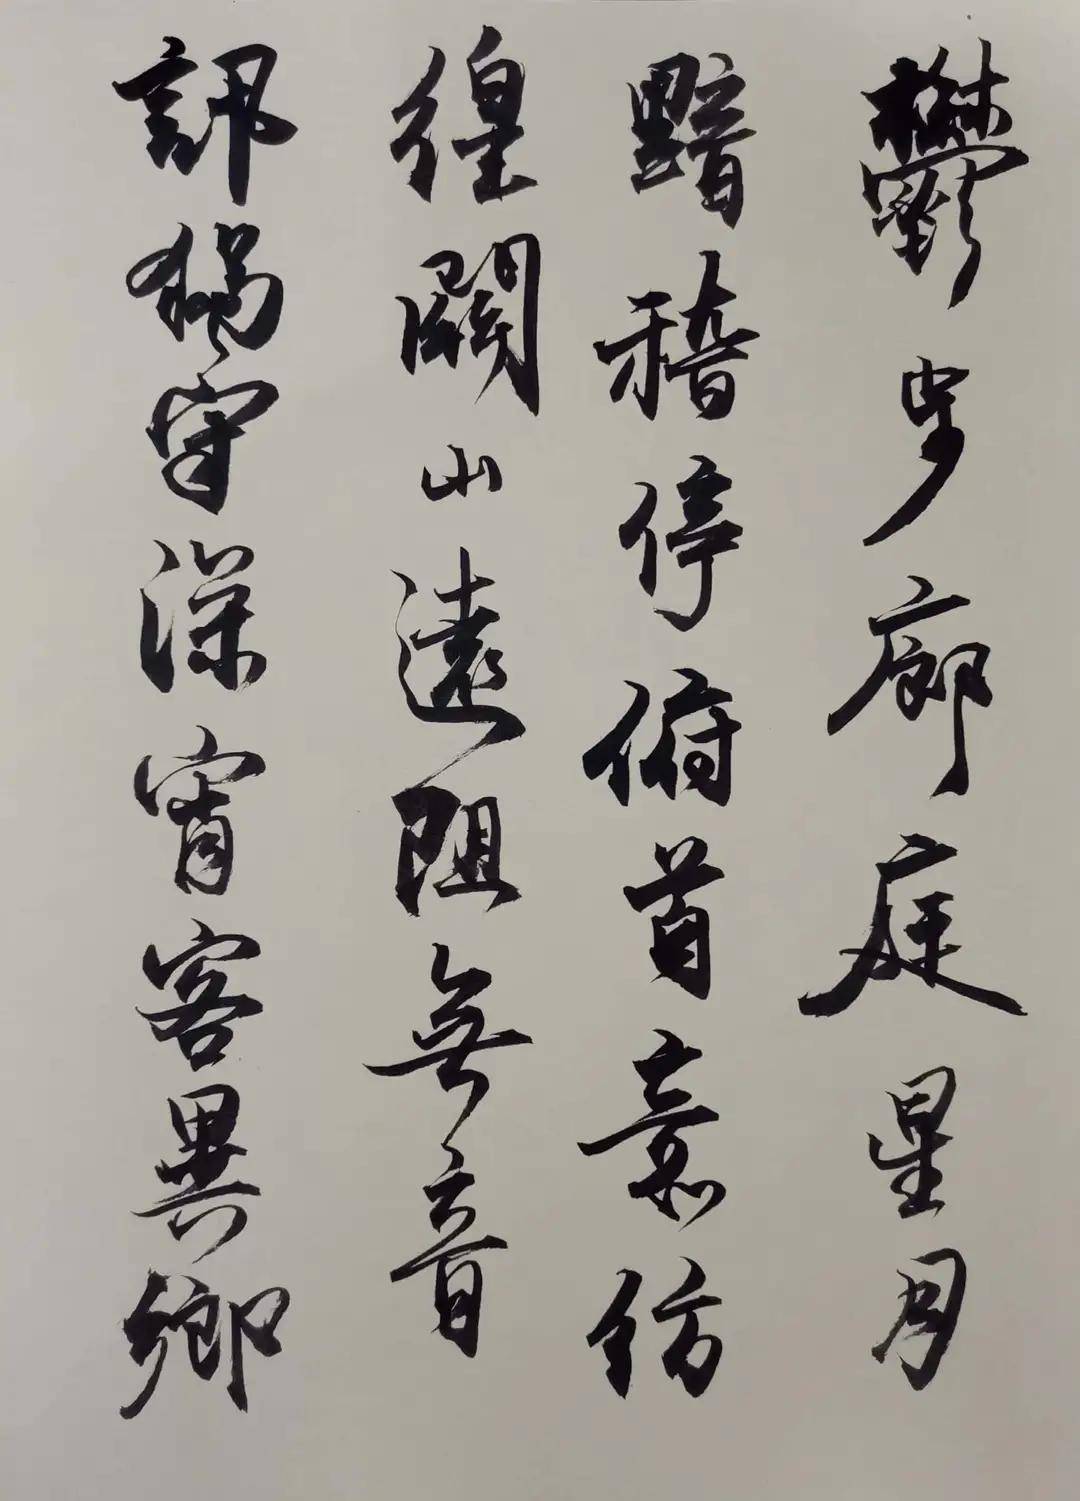 鬱步廊庭星月
黯稽停俯首意彷
徨關山遠阻無音
訊獨守深宵客異鄉